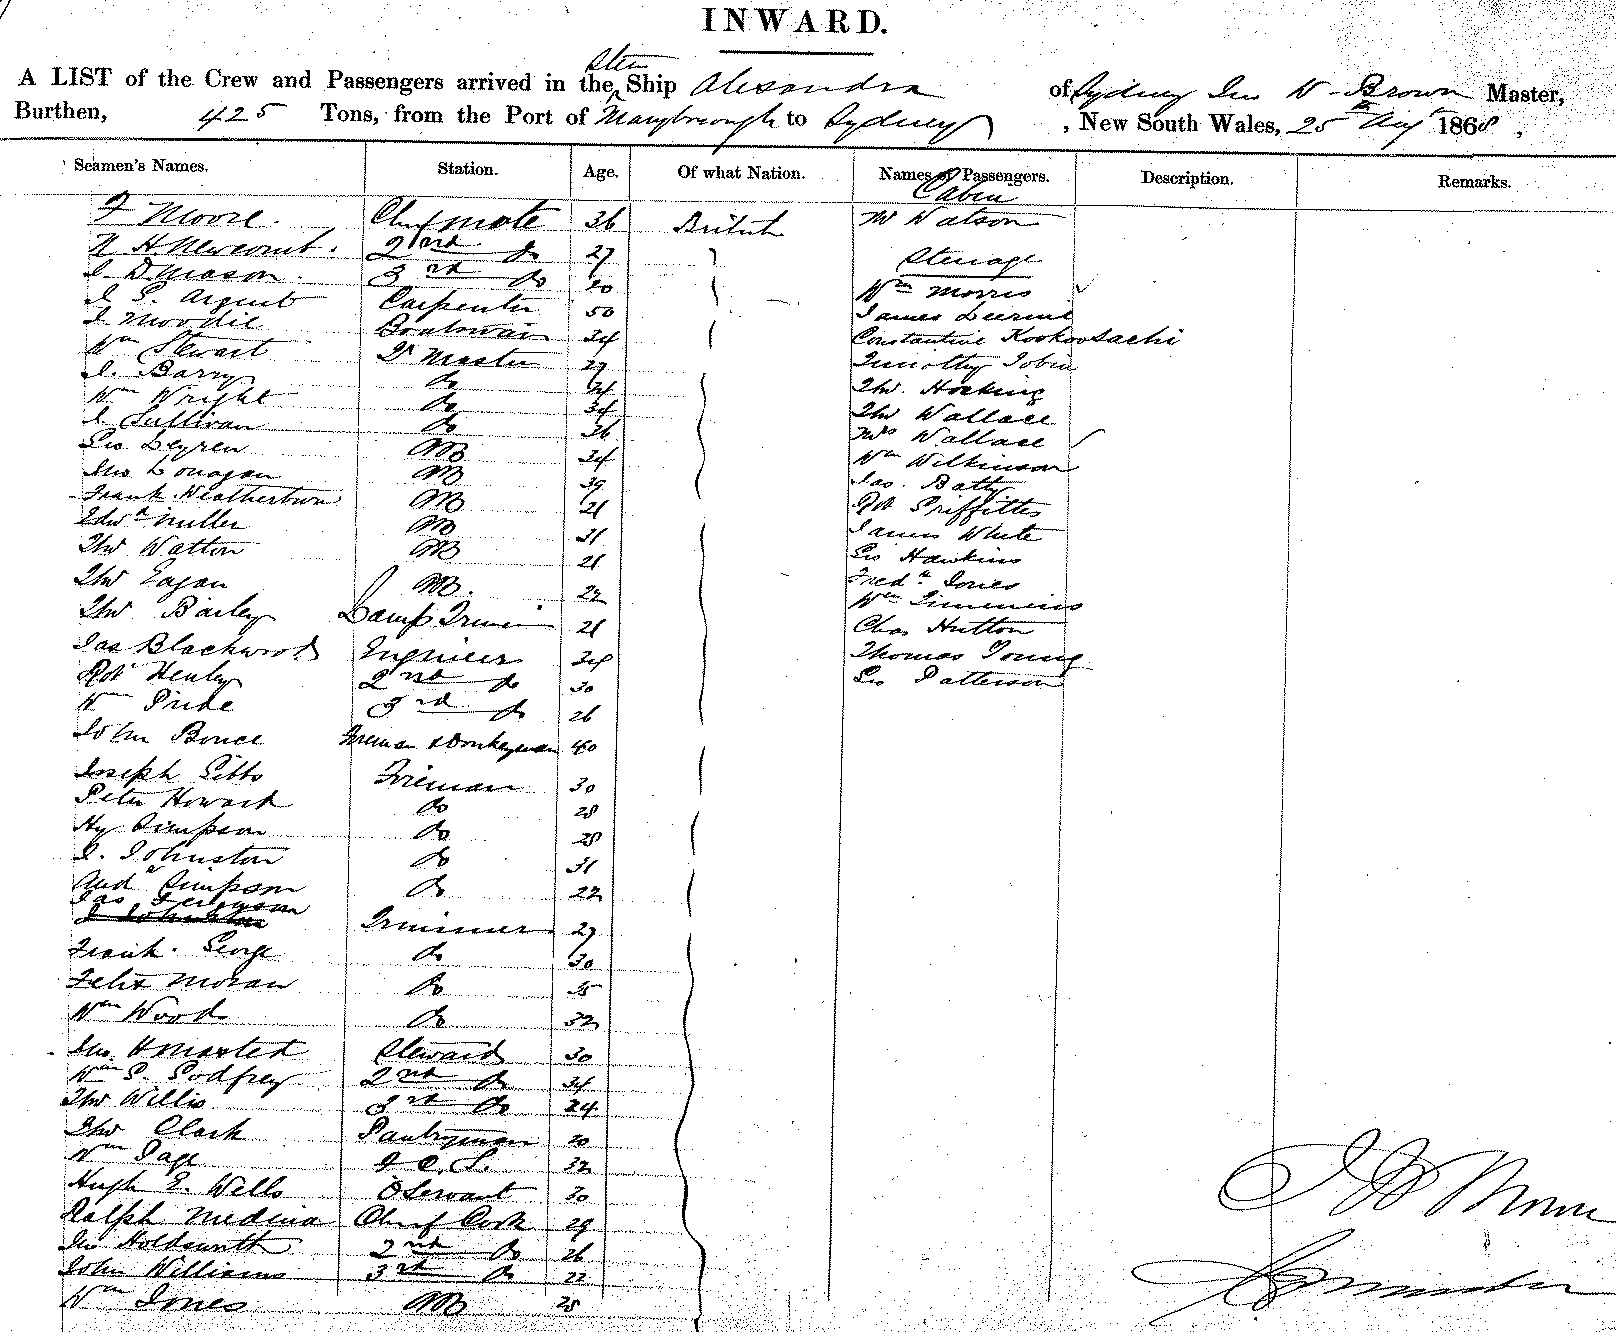 INWARD.
A LIST of the Crew and Passengers arrived in the Stm Ship Alexandra of Sydney Jno W Brown Master,
Burthen, 425 Tons, from the Port of Maryborough to Sydney, New South Wales, 25th Augt 1868.
Seamen's Names. Station. Age. Of what Nation. Names of Passengers. Description. Remarks.
Cabin
F Moore Chief mate 36 British Mr Watson
N H Newcomb 2nd do 27 Steerage
J. D. Mason 3rd do 20 Wm Morris
J. S. Carpenter 50 James
J Moodie Boatswain 34 Constantine
Wm Stewart Qr Master 29 Timothy Tobin
J. Barry do 24 Tho. Hocking
Wm Wright do 34 Tho Wallace
J Sullivan do 26 Mrs Wallace
Geo AB 34 Wm Wilkinson
Jno Lonagan AB 39 Jas. Batty
Frank AB 21 Robt Griffiths
Edwd Miller AB 31 James White
Tho Watton AB 21 Geo Hawkins
Tho Eagan AB. 22 Fredk Jones
Tho Bailey Lamp Trimr 21 Wm Timmins
Chas Hutton
Jas Blackwood Engineer 34 Thomas Young
Robt Henley 2nd do 30 Geo Patterson
W Pride 3rd do 26
John Bonce Fireman & Donkeyman 40
Joseph Gibbs Fireman 30
Peter Howard do 28
Hy Simpson do 28
J. Johnston do 31
Andw Simpson do 22
Jas Ferguson
J Johnston Trimmer 29
Frank George do 30
Felix Moran do 25
Wm Wood do 32
Jno. Steward 30
Wm G. Godfrey 2nd do 34
Tho Willis 3rd do 24
Tho Clark Pantryman 20
Wm Page F. C. S. 32
Hugh E. Wells O Servant 30
Ralph Medina Chief Cook 29
Jno Holdsworth 2nd do 26
John Williams 3rd do 22
Wm Jones AB 25
J W Brown